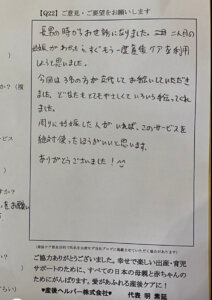 【Q22】ご意見・ご要望をお願いします
長男の時からお世話になりました。二児 二人目の
妊娠がわかったら、すぐもう一度産後ケアを利用
しようと思いました。
今回は3名の方が交代してお伝いしていただき
ました。どなたもとてもやさしくていろいろ手伝ってくれ
ました。
周りに妊娠した人がいれば、このサービスを
絶対使ったほうがいいと思います。
ありがとうございました！^^
ご協力ありがとうございました。幸せで楽しい出産・育児
サポートのために、すべての日本の母親と赤ちゃんの
ためにがんばります。愛があふれる産後ケアに！
♥産後ヘルパー株式会社♥ 代表 明 素延